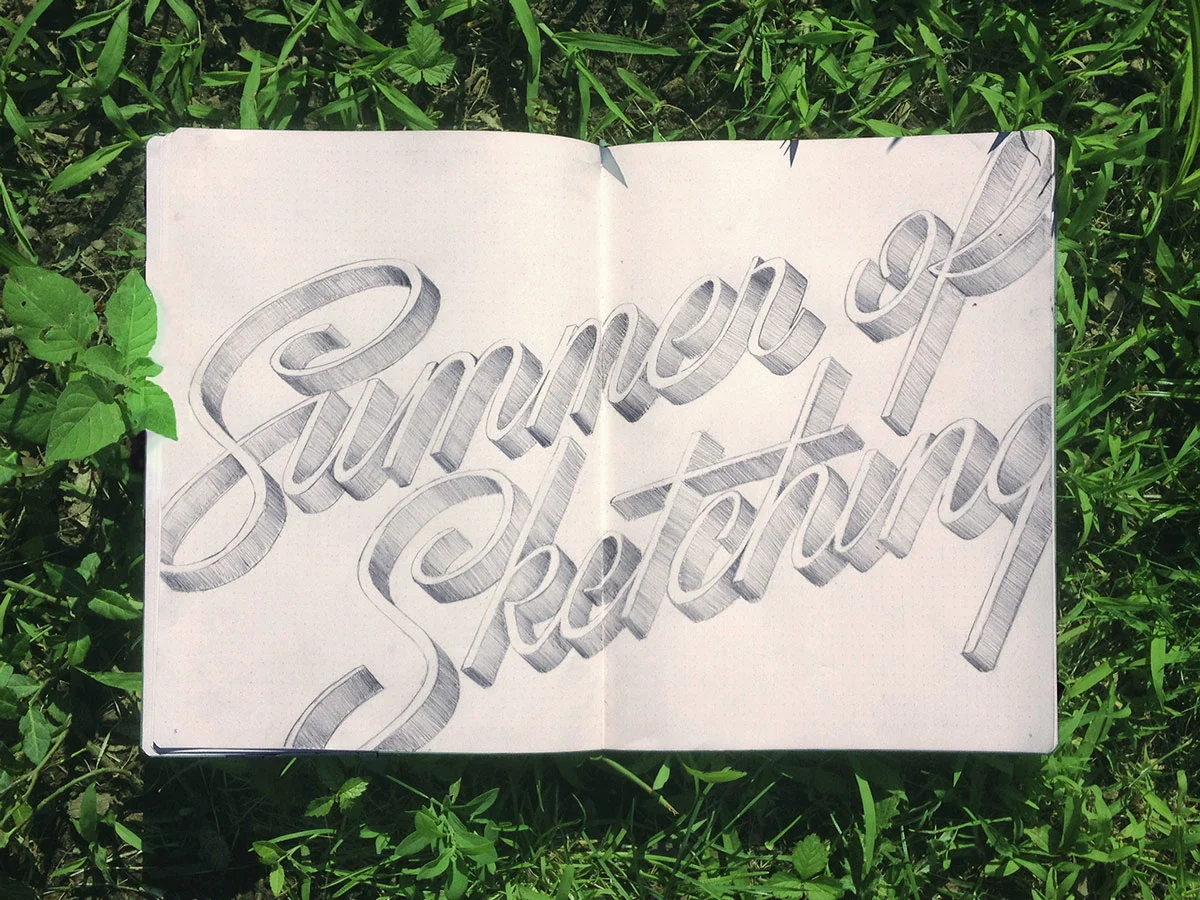 Summer of
Sketching